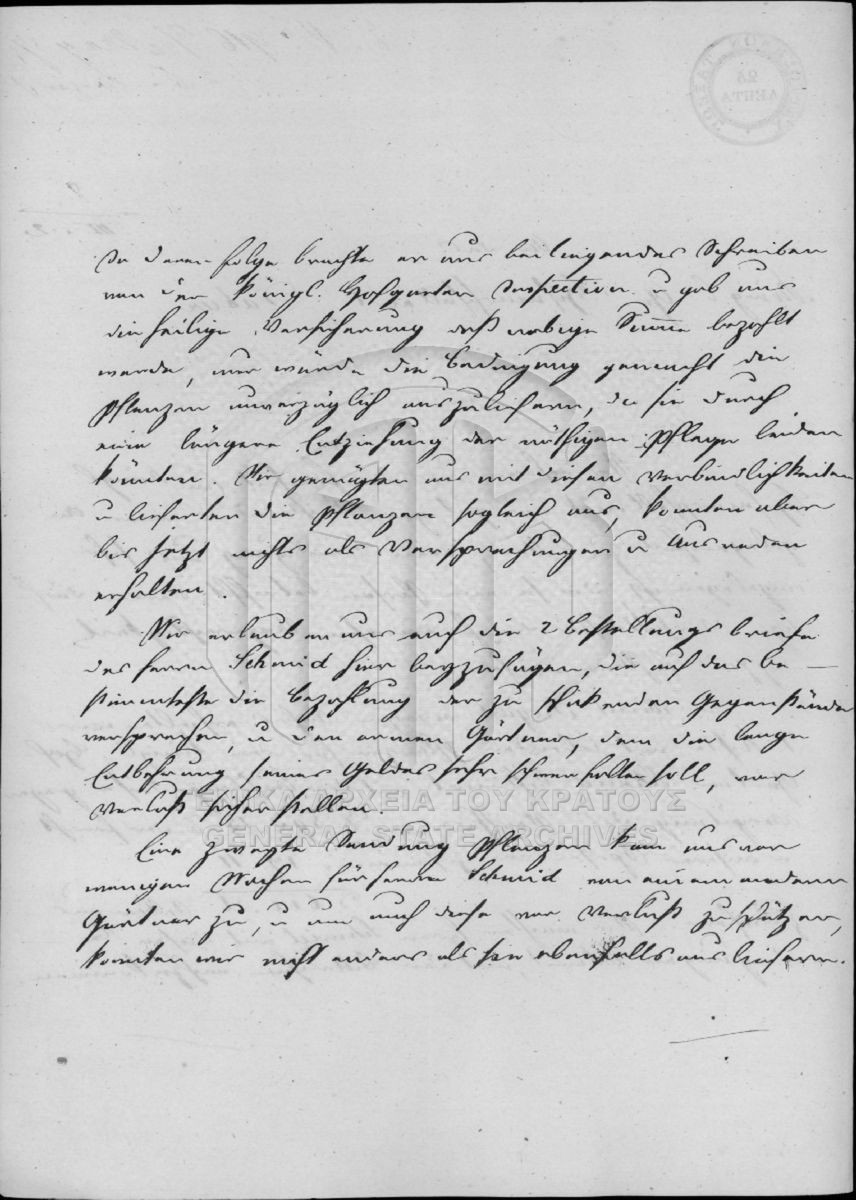 In deren Folge brachte er uns beiliegendes Schreiben
von der Königl. Hofgarten Inspection u gab uns
die heilige Versicherung daß obige Summe bezahlt
werde, nur würde die Bedingung gemacht die
Pflanzen unverzüglich auszuliefern, da sie durch
eine längere Entziehung der nöthigen Pflege leiden
könnten. Wir genügten uns mit diesen Verbindlichkeiten
u lieferten die Pflanzen sogleich aus, konnten aber
bis jetzt nichts als Versprechungen u Ausreden
erhalten.
Wir erlauben uns auch die 2 Bestellungsbriefe
des Herrn Schmid hier beyzufügen, die auf das be-
stimmteste die Bezahlung der zu schikenden Gegenstände
versprechen, u den armen Gärtner, dem die lange
Entbehrung seines Geldes sehr schwer fallen soll, vor
Verlust sicher stellen.
Eine zweyte Sendung Pflanzen kam uns vor
wenigen Wochen für Herrn Schmid von einem andern
Gärtner zu, u um auch diese vor Verlust zu schützen,
konnten wir nicht anders als sie ebenfalls aus liefern.
ΓΕΝΙΚΑ ΑΡΧΕΙΑ ΤΟΥ ΚΡΑΤΟΥΣ
GENERAL STATE ARCHIVES